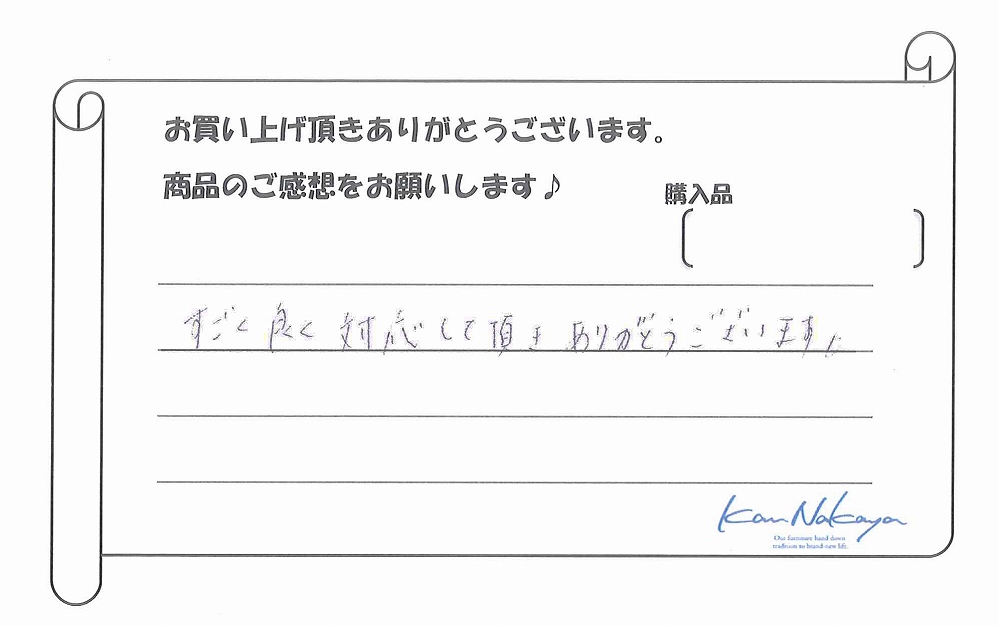 お買い上げ頂きありがとうございます。
商品のご感想をお願いします♪
購入品
すごく良く対応して頂きありがとうございます。
Kan Nakaya
Our furniture hand down
tradition to brand-new life.